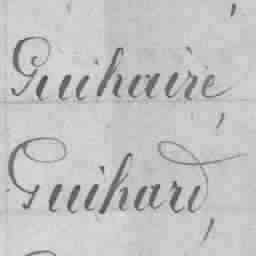 Guihaire,
Guihard,